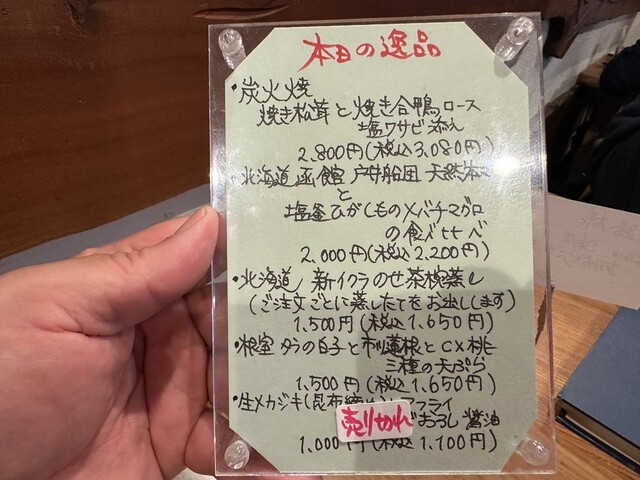 本日の逸品
・炭火焼
焼き松茸と焼き合鴨ロース
塩ワサビ添え
2,800円(税込3,080円)
・北海道 函館 戸井船団 天然本
と
塩釜ひがしものメバチマグロ
の食べ比べ
2,000円(税込2,200円)
・北海道 新イクラのせ茶碗蒸し
(ご注文ごとに蒸したてをお出しします)
1,500円(税込1,650円)
・根室 タラの白子と 蓮根と 桃
三種の天ぷら
1,500円(税込1,650円)
・生メカジキ(昆布 フライ
売り切れ おろし 醤油
1,000円(税込1,100円)